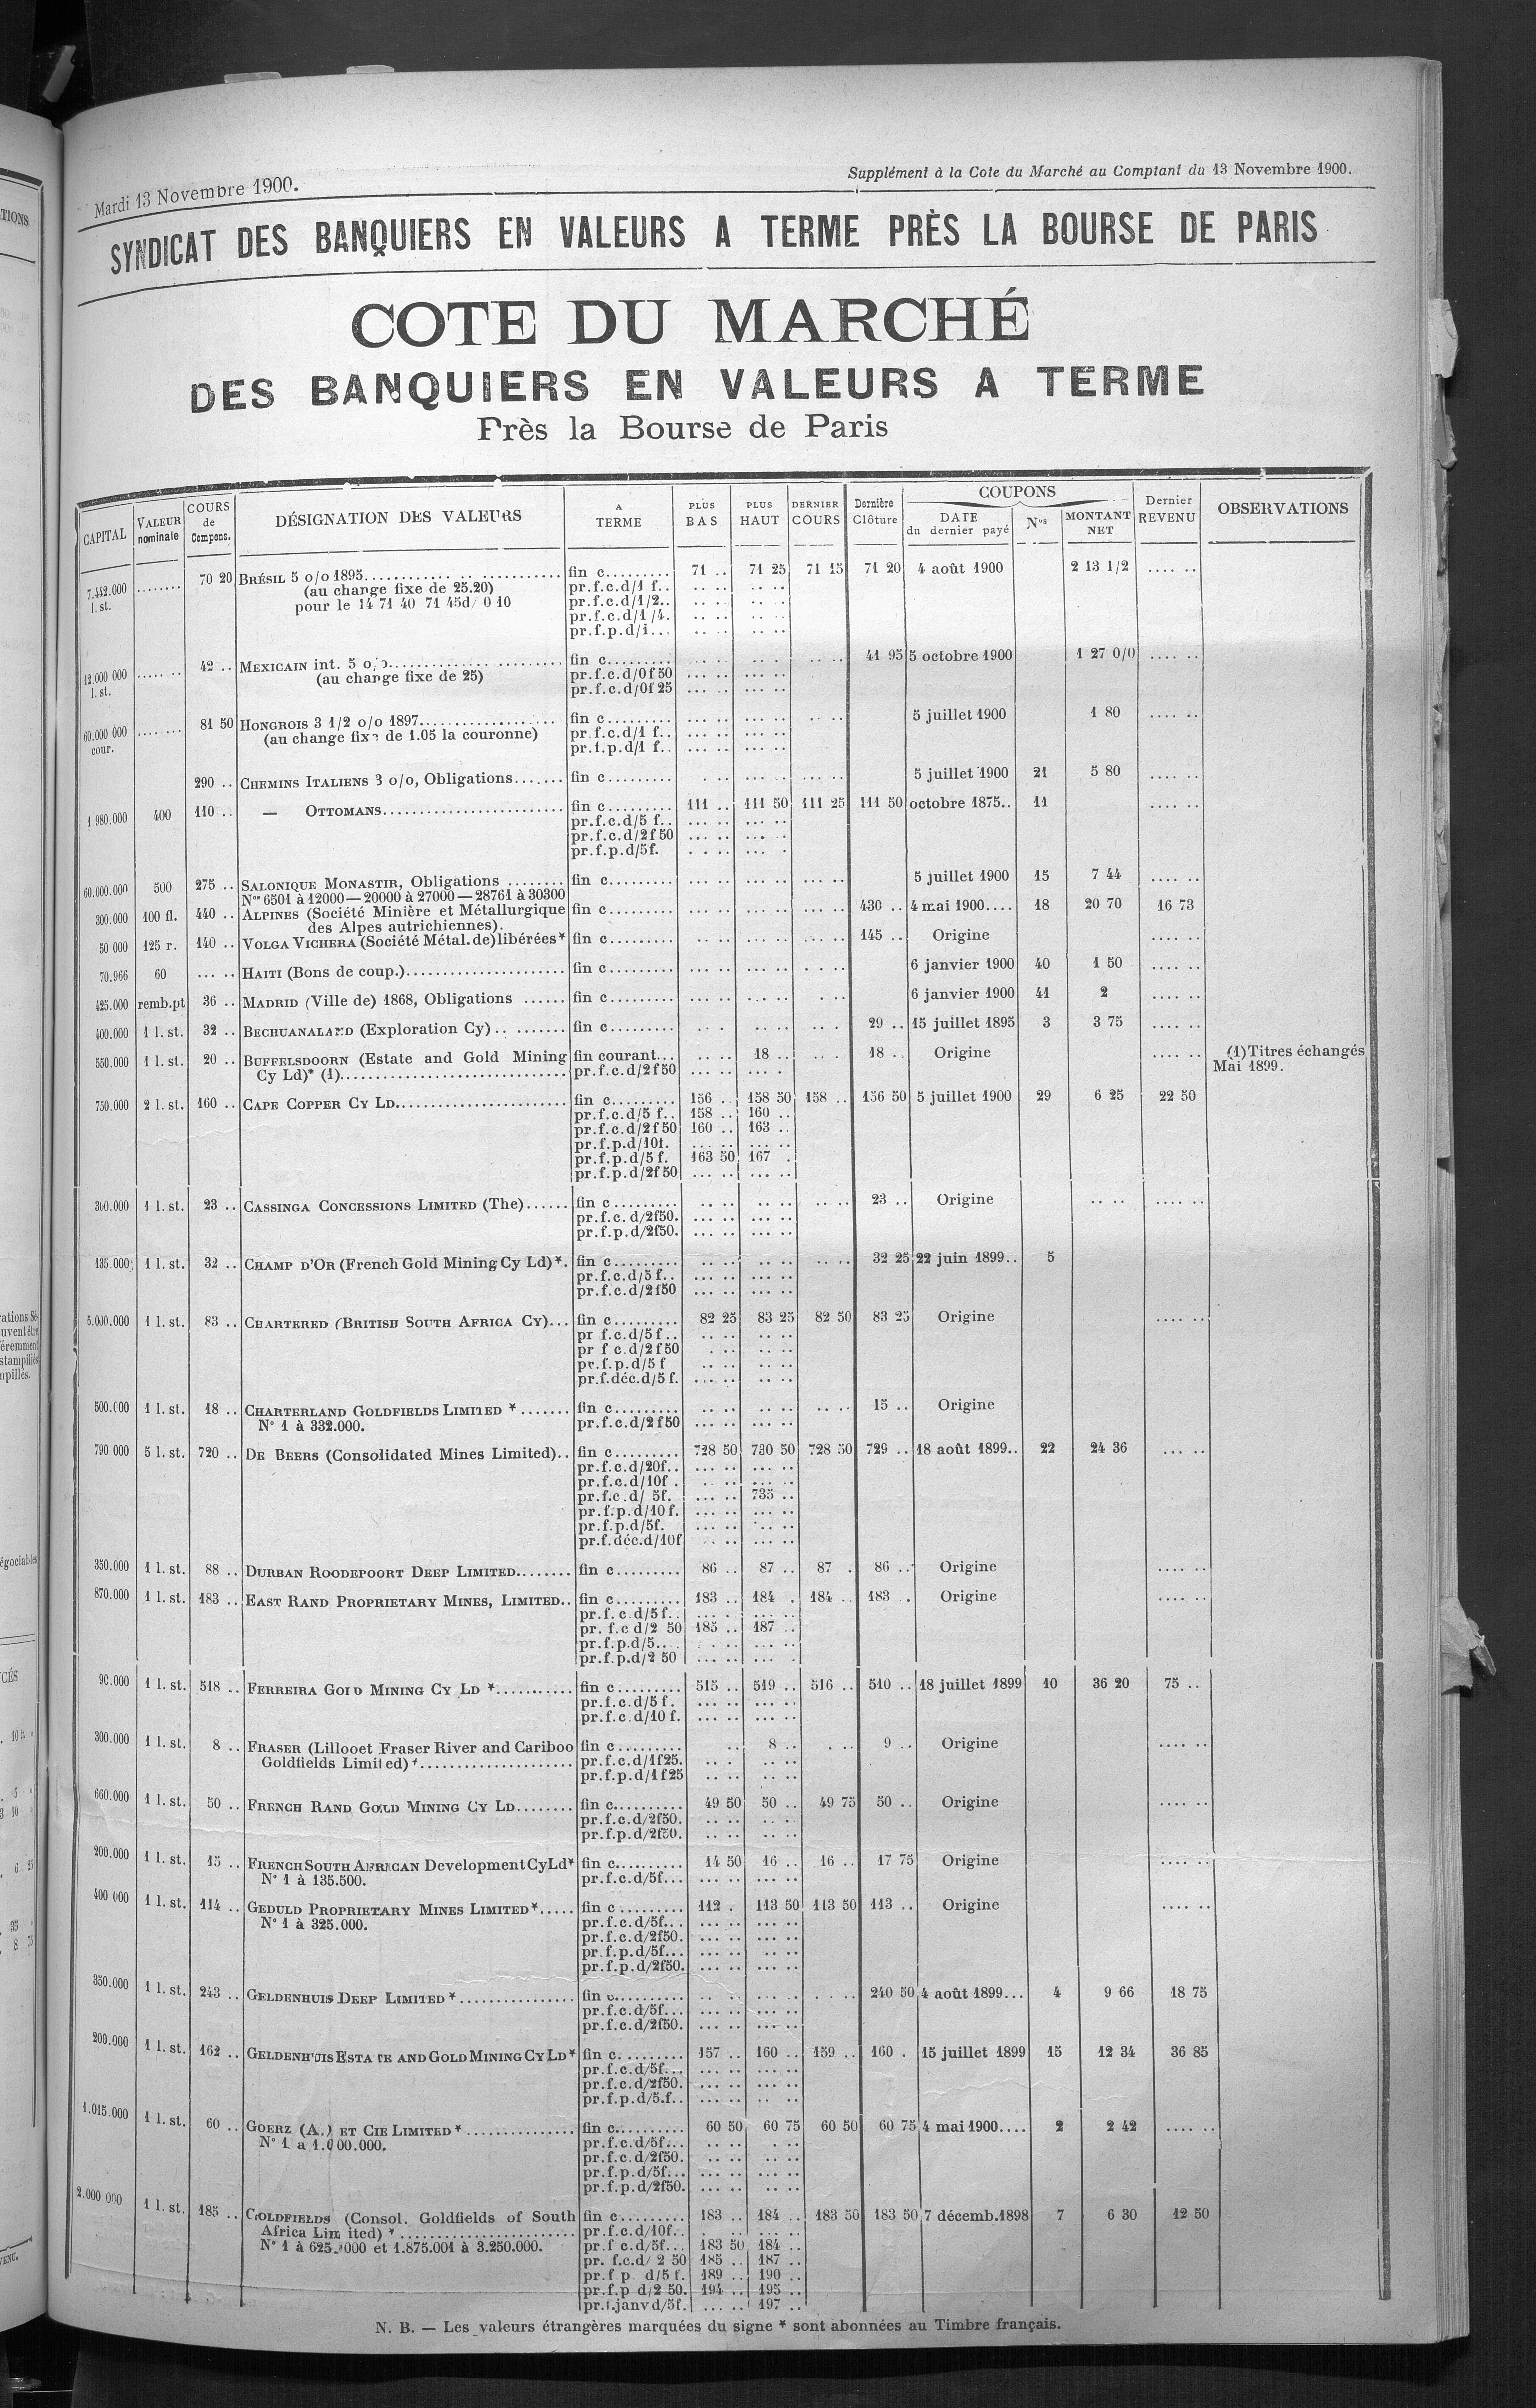 Mardi 13 Novembre 1900.
Supplément à la Cote du Marché au Comptant du 13 Novembre 1900.
SYNDICAT DES BANQUIERS EN VALEURS A TERME PRÈS LA BOURSE DE PARIS
COTE DU MARCHÉ
DES BANQUIERS EN VALEURS A TERME
Près la Bourse de Paris
CAPITAL VALEUR nominale COURS de Compens. DÉSIGNATION DES VALEURS A TERME PLUS BAS PLUS HAUT DERNIER COURS Dernière Clôture COUPONS DATE du dernier payé Nos MONTANT NET Dernier REVENU OBSERVATIONS
7.442.000 l. st. ........ 70 20 BRÉSIL 5 o/o 1895.......... fin c......... 71 .. 71 25 71 15 71 20 4 août 1900 2 13 1/2 .... ..
(au change fixe de 25.20) pr.f.c.d/1 f..
pour le 14 71 40 71 45d/ 0 10 pr.f.c.d/1/2..
pr.f.c.d/1/4.
pr.f.p.d/i...
12.000 000 l. st. ........ 42 .. MEXICAIN int. 5 o/o.......... fin c......... 41 95 5 octobre 1900 1 27 0/0 .... ..
(au change fixe de 25) pr.f.c.d/0f50
pr.f.c.d/0f25
60.000 000 cour. ........ 81 50 HONGROIS 3 1/2 o/o 1897.......... fin c......... 5 juillet 1900 1 80 .... ..
(au change fixe de 1.05 la couronne) pr.f.c.d/1 f..
pr.f.p.d/1 f..
290 .. CHEMINS ITALIENS 3 o/o, Obligations....... fin c......... 5 juillet 1900 21 5 80 .... ..
1 980.000 400 110 .. — OTTOMANS.......... fin c......... 111 .. 111 50 111 25 111 50 octobre 1875.. 11 .... ..
pr.f.c.d/5 f..
pr.f.c.d/2f50
pr.f.p.d/5f.
60.000.000 500 275 .. SALONIQUE MONASTIR, Obligations ........ fin c......... 5 juillet 1900 15 7 44 .... ..
Nos 6501 à 12000—20000 à 27000—28761 à 30300
300.000 100 fl. 440 .. ALPINES (Société Minière et Métallurgique fin c......... 430 .. 4 mai 1900.... 18 20 70 16 73
des Alpes autrichiennes).
50 000 125 r. 140 .. VOLGA VICHERA (Société Métal.de) libérées* fin c......... 145 .. Origine .... ..
70.966 60 ... .. HAITI (Bons de coup.).......... fin c......... 6 janvier 1900 40 1 50 .... ..
425.000 remb.pt 36 .. MADRID (Ville de) 1868, Obligations ...... fin c......... 6 janvier 1900 41 2 .... ..
400.000 1 l. st. 32 .. BECHUANALAND (Exploration Cy).. ....... fin c......... 29 .. 15 juillet 1895 3 3 75 .... ..
550.000 1 l. st. 20 .. BUFFELSDOORN (Estate and Gold Mining fin courant... 18 .. 18 .. Origine .... .. (1) Titres échangés
Cy Ld)* (1).......... pr.f.c.d/2f50 Mai 1899.
750.000 2 l. st. 160 .. CAPE COPPER CY LD.......... fin c......... 156 .. 158 50 158 .. 156 50 5 juillet 1900 29 6 25 22 50
pr.f.c.d/5 f.. 158 .. 160 ..
pr.f.c.d/2f50 160 .. 163 ..
pr.f.p.d/10f.
pr.f.p.d/5 f. 163 50 167 .
pr.f.p.d/2f50
300.000 1 l. st. 23 .. CASSINGA CONCESSIONS LIMITED (The)...... fin c......... 23 .. Origine .... ..
pr.f.c.d/2f50.
pr.f.p.d/2f50.
135.000 1 l. st. 32 .. CHAMP D'OR (French Gold Mining Cy Ld)*. fin c......... 32 25 22 juin 1899.. 5
pr.f.c.d/5 f..
pr.f.c.d/2f50
5.000.000 1 l. st. 83 .. CHARTERED (BRITISH SOUTH AFRICA CY)... fin c......... 82 25 83 25 82 50 83 25 Origine .... ..
pr f.c.d/5 f..
pr f c.d/2f50
pr.f.p.d/5 f
pr.f.déc.d/5 f.
500.000 1 l. st. 18 .. CHARTERLAND GOLDFIELDS LIMITED *....... fin c......... 15 .. Origine
N° 1 à 332.000. pr.f.c.d/2f50
790 000 5 l. st. 720 .. DE BEERS (Consolidated Mines Limited).. fin c......... 728 50 730 50 728 50 729 .. 18 août 1899.. 22 24 36 ... ..
pr.f.c.d/20f..
pr.f.c.d/10f .
pr.f.c.d/ 5f. 735 ..
pr.f.p.d/10f.
pr.f.p.d/5f.
pr.f.déc.d/10f
350.000 1 l. st. 88 .. DURBAN ROODEPOORT DEEP LIMITED........ fin c......... 86 .. 87 .. 87 . 86 .. Origine .... ..
870.000 1 l. st. 183 .. EAST RAND PROPRIETARY MINES, LIMITED.. fin c......... 183 .. 184 . 184 .. 183 . Origine .... ..
pr.f.c.d/5 f..
pr. f.c d/2 50 185 .. 187 ..
pr.f.p.d/5...
pr.f.p.d/2 50
90.000 1 l. st. 518 .. FERREIRA GOLD MINING CY LD *.......... fin c......... 515 .. 519 .. 516 .. 510 .. 18 juillet 1899 10 36 20 75 ..
pr.f.c.d/5 f.
pr.f.c.d/10 f.
300.000 1 l. st. 8 .. FRASER (Lillooet Fraser River and Cariboo fin c......... 8 .. 9 .. Origine .... ..
Goldfields Limited)*.......... pr.f.c.d/1f25.
pr.f.p.d/1f25
660.000 1 l. st. 50 .. FRENCH RAND GOLD MINING CY LD........ fin c.......... 49 50 50 .. 49 75 50 .. Origine .... ..
pr.f.c.d/2f50.
pr.f.p.d/2f50.
200.000 1 l. st. 15 .. FRENCH SOUTH AFRICAN Development Cy Ld* fin c.......... 14 50 16 .. 16 .. 17 75 Origine .... ..
N° 1 à 135.500. pr.f.c.d/5f...
400 000 1 l. st. 114 .. GEDULD PROPRIETARY MINES LIMITED*..... fin c ......... 112 . 113 50 113 50 113 .. Origine .... ..
N° 1 à 325.000. pr.f.c.d/5f...
pr.f.c.d/2f50.
pr.f.p.d/5f...
pr.f.p.d/2f50.
350.000 1 l. st. 243 .. GELDENHUIS DEEP LIMITED *.......... fin c.......... 240 50 4 août 1899... 4 9 66 18 75
pr.f.c.d/5f...
pr.f.c.d/2f50.
200.000 1 l. st. 162 .. GELDENHUIS ESTATE AND GOLD MINING CY LD* fin c. ........ 157 .. 160 .. 159 .. 160 . 15 juillet 1899 15 12 34 36 85
pr.f.c.d/5f...
pr.f.c.d/2f50.
pr.f.p.d/5.f..
1.015.000 1 l. st. 60 .. GOERZ (A.) ET CIE LIMITED *.......... fin c.......... 60 50 60 75 60 50 60 75 4 mai 1900.... 2 2 42 .... ..
N° 1 a 1.000.000. pr.f.c.d/5f...
pr.f.c.d/2f50.
pr.f.p.d/5f...
pr.f.p.d/2f50.
2.000 000 1 l. st. 185 .. GOLDFIELDS (Consol. Goldfields of South fin c......... 183 .. 184 .. 183 50 183 50 7 décemb.1898 7 6 30 12 50
Africa Limited) *.......... pr.f.c.d/10f..
N° 1 à 625.000 et 1.875.001 à 3.250.000. pr.f c.d/5f... 183 50 184 ..
pr. f.c.d/ 2 50 185 .. 187 ..
pr.f p d/5 f. 189 .. 190 ..
pr.f.p d/2 50. 194 .. 195 ..
pr.f.janv d/5f. 197 ..
N. B. — Les valeurs étrangères marquées du signe * sont abonnées au Timbre français.